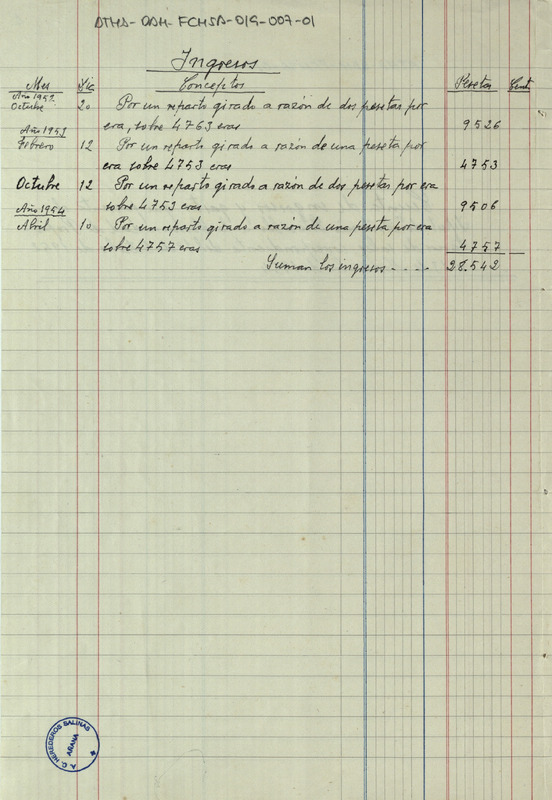 ATHA-DAH-FCHSA-019-007-01
Ingresos
Mes Día Conceptos Pesetas Cent.
Año 1952
Octubre 20 Por un reparto girado a razón de dos pesetas por
era, sobre 4763 eras 9526
Año 1953
Febrero 12 Por un reparto girado a razón de una peseta por
era sobre 4753 eras 4753
Octubre 12 Por un reparto girado a razón de dos pesetas por era
sobre 4753 eras 9506
Año 1954
Abril 10 Por un reparto girado a razón de una peseta por era
sobre 4757 eras 4757
Suman los ingresos - - - - 28.542
A. C. HEREDEROS SALINAS
AÑANA